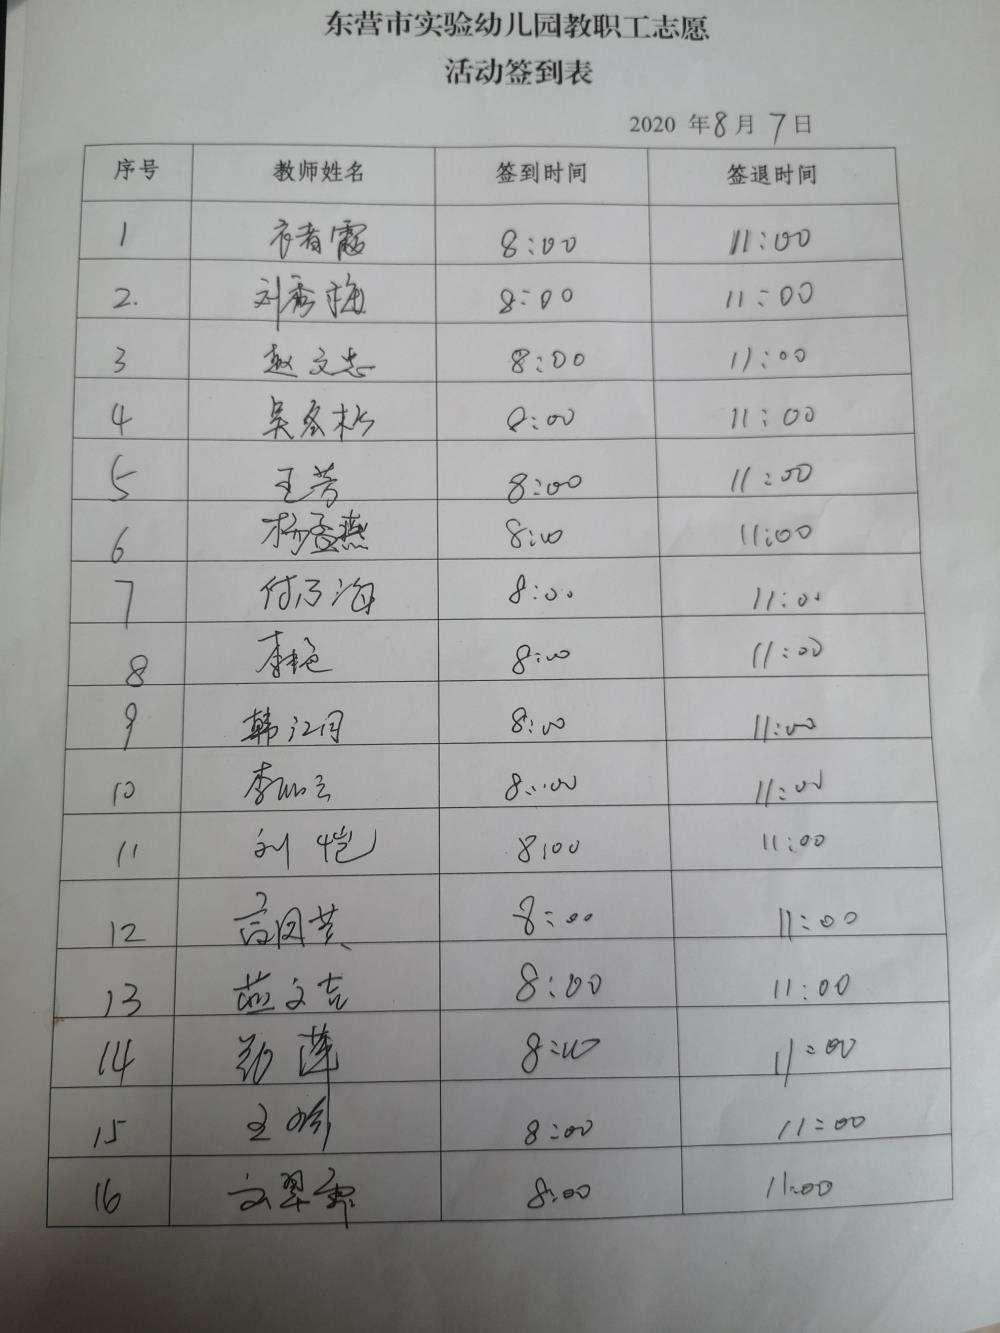 东营市实验幼儿园教职工志愿
活动签到表
2020 年8月7日
序号 教师姓名 签到时间 签退时间
1 8:00 11:00
2. 刘秀梅 8:00 11:00
3 赵文忠 8:00 11:00
4 吴 8:00 11:00
5 王芳 8:00 11:00
6 杨孟燕 8:00 11:00
7 付乃海 8:00 11:00
8 李艳 8:00 11:00
9 韩江月 8:00 11:00
10 李 8:00 11:00
11 刘恺 8:00 11:00
12 高国英 8:00 11:00
13 燕文吉 8:00 11:00
14 郑萍 8:00 11:00
15 王 8:00 11:00
16 8:00 11:00